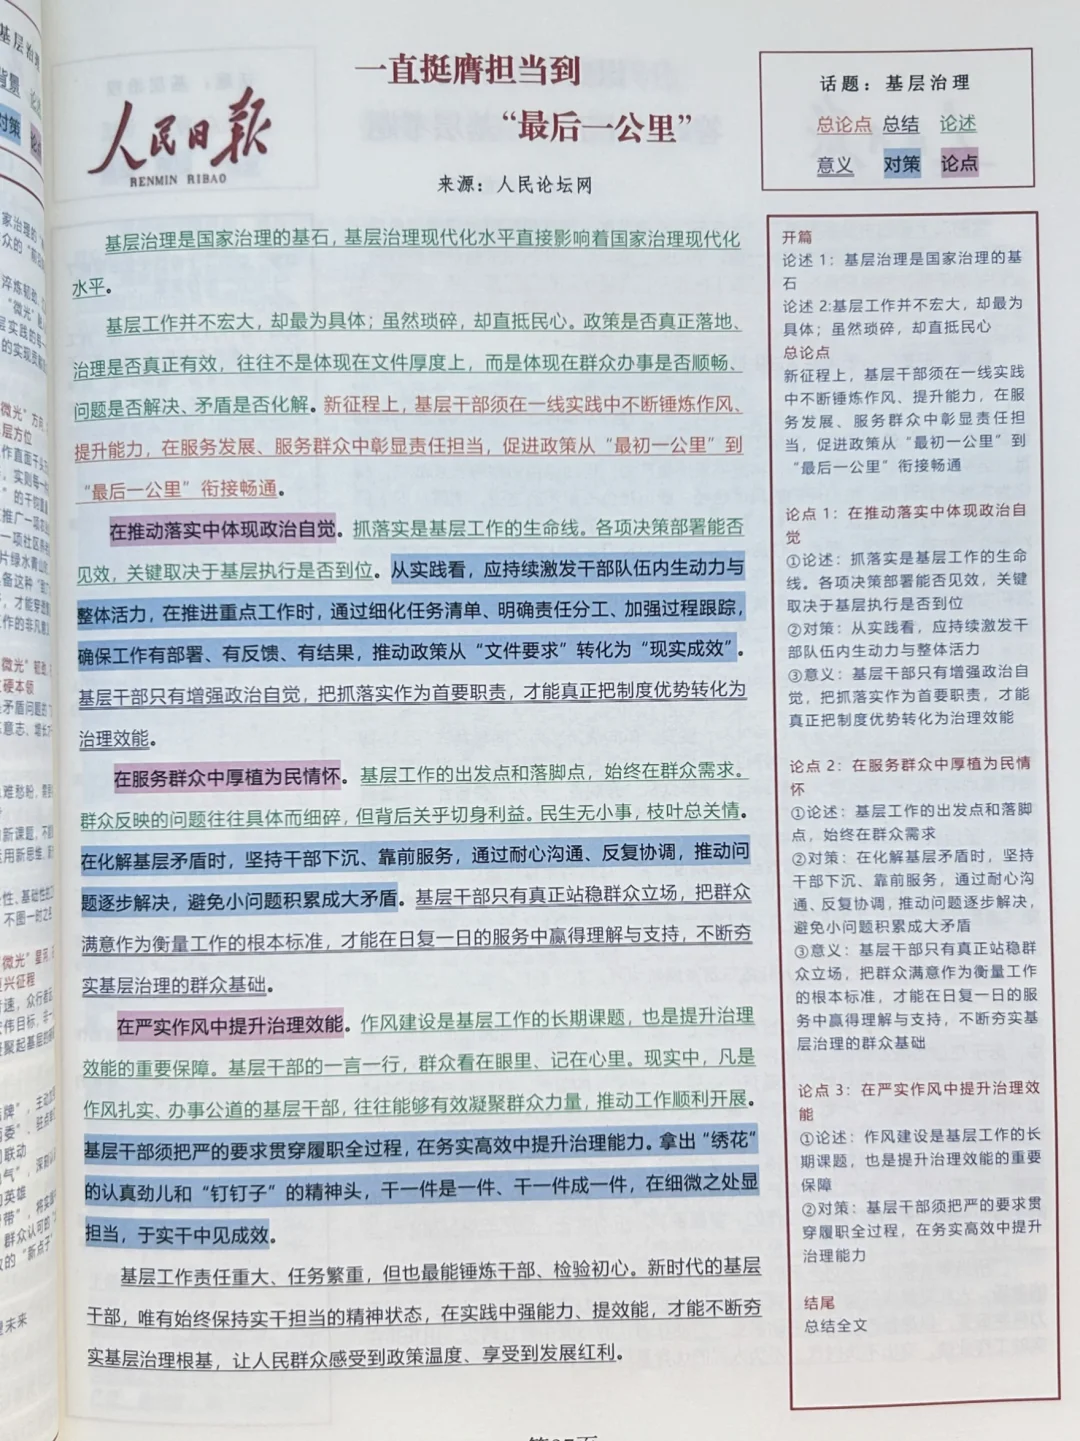 一直挺膺担当到
“最后一公里”
人民日报
RENMIN RIBAO
来源：人民论坛网
话题：基层治理
总论点 总结 论述
意义 对策 论点
基层治理是国家治理的基石，基层治理现代化水平直接影响着国家治理现代化
水平。
基层工作并不宏大，却最为具体；虽然琐碎，却直抵民心。政策是否真正落地、
治理是否真正有效，往往不是体现在文件厚度上，而是体现在群众办事是否顺畅、
问题是否解决、矛盾是否化解。新征程上，基层干部须在一线实践中不断锤炼作风、
提升能力，在服务发展、服务群众中彰显责任担当，促进政策从“最初一公里”到
“最后一公里”衔接畅通。
在推动落实中体现政治自觉。抓落实是基层工作的生命线。各项决策部署能否
见效，关键取决于基层执行是否到位。从实践看，应持续激发干部队伍内生动力与
整体活力，在推进重点工作时，通过细化任务清单、明确责任分工、加强过程跟踪，
确保工作有部署、有反馈、有结果，推动政策从“文件要求”转化为“现实成效”。
基层干部只有增强政治自觉，把抓落实作为首要职责，才能真正把制度优势转化为
治理效能。
在服务群众中厚植为民情怀。基层工作的出发点和落脚点，始终在群众需求。
群众反映的问题往往具体而细碎，但背后关乎切身利益。民生无小事，枝叶总关情。
在化解基层矛盾时，坚持干部下沉、靠前服务，通过耐心沟通、反复协调，推动问
题逐步解决，避免小问题积累成大矛盾。基层干部只有真正站稳群众立场，把群众
满意作为衡量工作的根本标准，才能在日复一日的服务中赢得理解与支持，不断夯
实基层治理的群众基础。
在严实作风中提升治理效能。作风建设是基层工作的长期课题，也是提升治理
效能的重要保障。基层干部的一言一行，群众看在眼里、记在心里。现实中，凡是
作风扎实、办事公道的基层干部，往往能够有效凝聚群众力量，推动工作顺利开展。
基层干部须把严的要求贯穿履职全过程，在务实高效中提升治理能力。拿出“绣花”
的认真劲儿和“钉钉子”的精神头，干一件是一件、干一件成一件，在细微之处显
担当，于实干中见成效。
基层工作责任重大、任务繁重，但也最能锤炼干部、检验初心。新时代的基层
干部，唯有始终保持实干担当的精神状态，在实践中强能力、提效能，才能不断夯
实基层治理根基，让人民群众感受到政策温度、享受到发展红利。
开篇
论述 1：基层治理是国家治理的基
石
论述 2:基层工作并不宏大，却最为
具体；虽然琐碎，却直抵民心
总论点
新征程上，基层干部须在一线实践
中不断锤炼作风、提升能力，在服
务发展、服务群众中彰显责任担
当，促进政策从“最初一公里”到
“最后一公里”衔接畅通
论点 1：在推动落实中体现政治自
觉
①论述：抓落实是基层工作的生命
线。各项决策部署能否见效，关键
取决于基层执行是否到位
②对策：从实践看，应持续激发干
部队伍内生动力与整体活力
③意义：基层干部只有增强政治自
觉，把抓落实作为首要职责，才能
真正把制度优势转化为治理效能
论点 2：在服务群众中厚植为民情
怀
①论述：基层工作的出发点和落脚
点，始终在群众需求
②对策：在化解基层矛盾时，坚持
干部下沉、靠前服务，通过耐心沟
通、反复协调，推动问题逐步解决，
避免小问题积累成大矛盾
③意义：基层干部只有真正站稳群
众立场，把群众满意作为衡量工作
的根本标准，才能在日复一日的服
务中赢得理解与支持，不断夯实基
层治理的群众基础
论点 3：在严实作风中提升治理效
能
①论述：作风建设是基层工作的长
期课题，也是提升治理效能的重要
保障
②对策：基层干部须把严的要求贯
穿履职全过程，在务实高效中提升
治理能力
结尾
总结全文